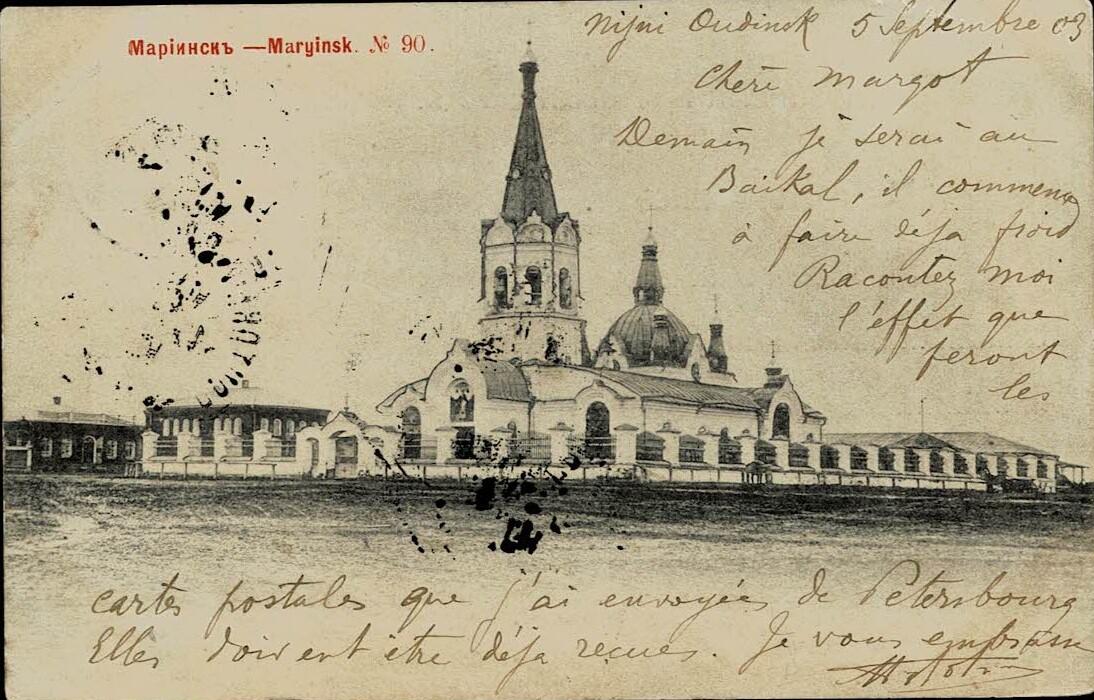 Маріинскъ — Maryinsk. № 90.
Nijni Oudinsk 5 Septembre 03
Chère Margot
Demain je serai au
Baikal, il commence
à faire déja froid
Racontez moi
l'effet que
feront
les
cartes postales que j'ai envoyées de Petersbourg
Elles doivent être déja recues. Je vous embrasse